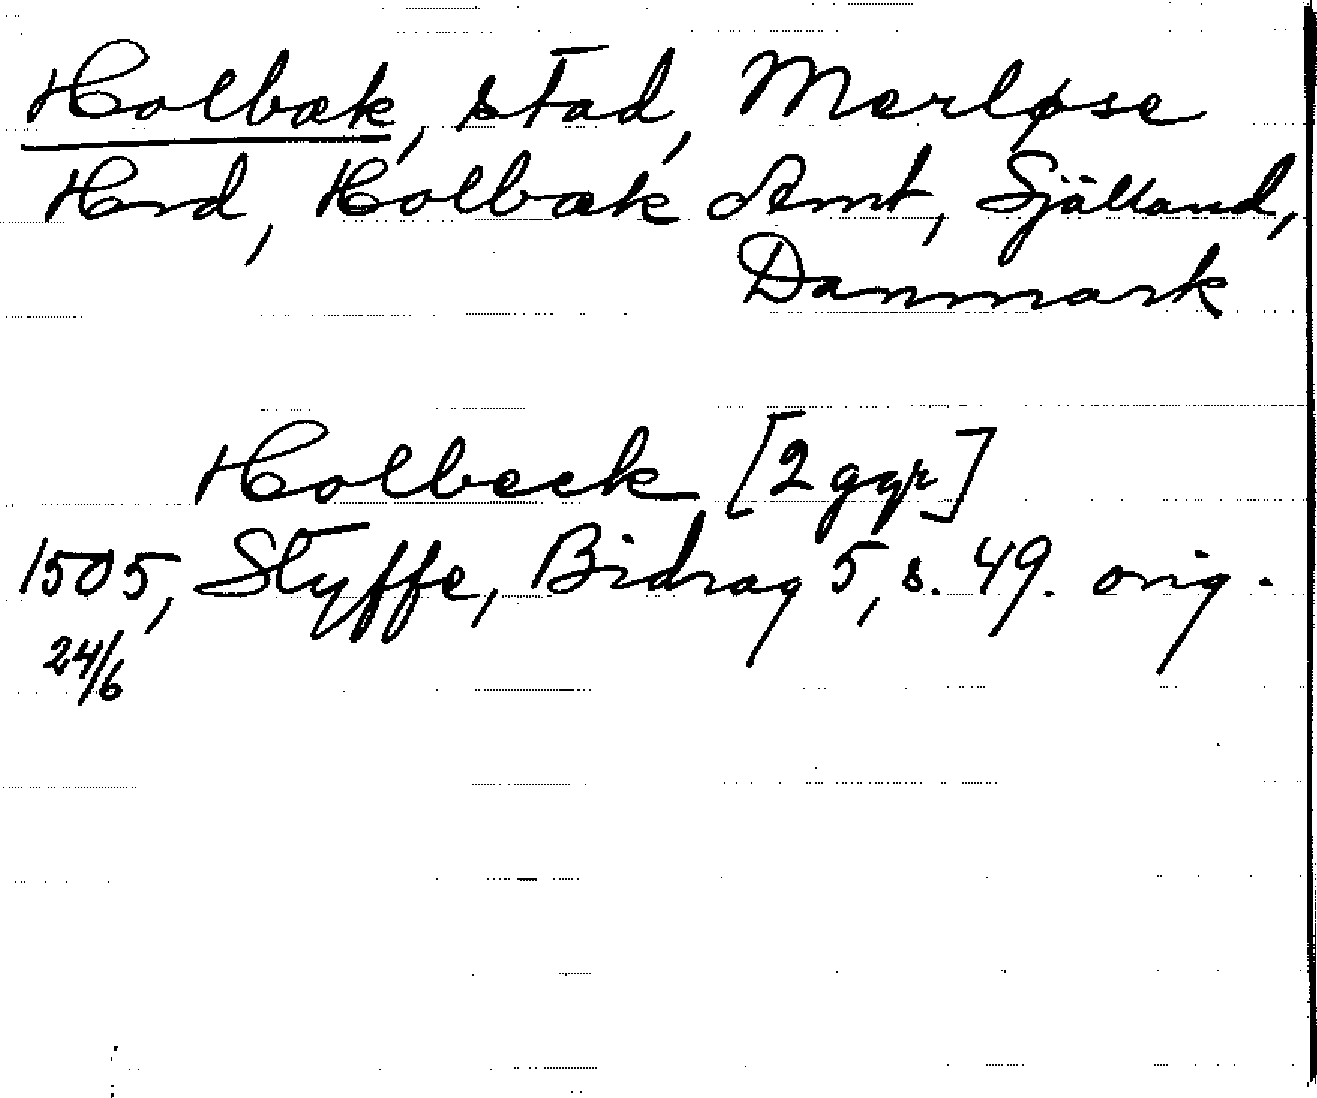 Holbæk, stad, Merløse
Hrd, Holbæk Amt, Själland,
Danmark
Holbeck [2 ggr]
1505, Styffe, Bidrag 5, s. 49. orig.
24/6